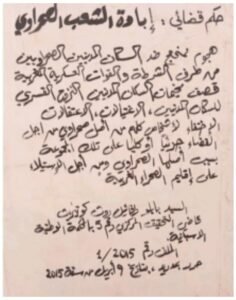 حكم قضائي : إبادة الشعب الصحراوي
هجوم ممنهج ضد السكان المدنيين الصحراويين
من طرف الشرطة والقوات العسكرية المغربية
قصف مخيمات السكان المدنيين النزوح القسري
للسكان المدنيين، الاغتيالات، الاعتقالات
الإختفاء لأشخاص كلهم من أصل صحراوي من أجل
القضاء جزئيا أو كليا على تلك المجموعة
بسبب أصلها الصحراوي ومن أجل الإستيلاء
على إقليم الصحراء الغربية.
السيد بابلو رفائيل روث
قاضي التحقيق المركزي رقم 5 بالمحكمة الوطنية
الإسبانية.
الملف رقم 4/2015
حرر بمدريد، بتاريخ 9 أبريل من سنة 2015